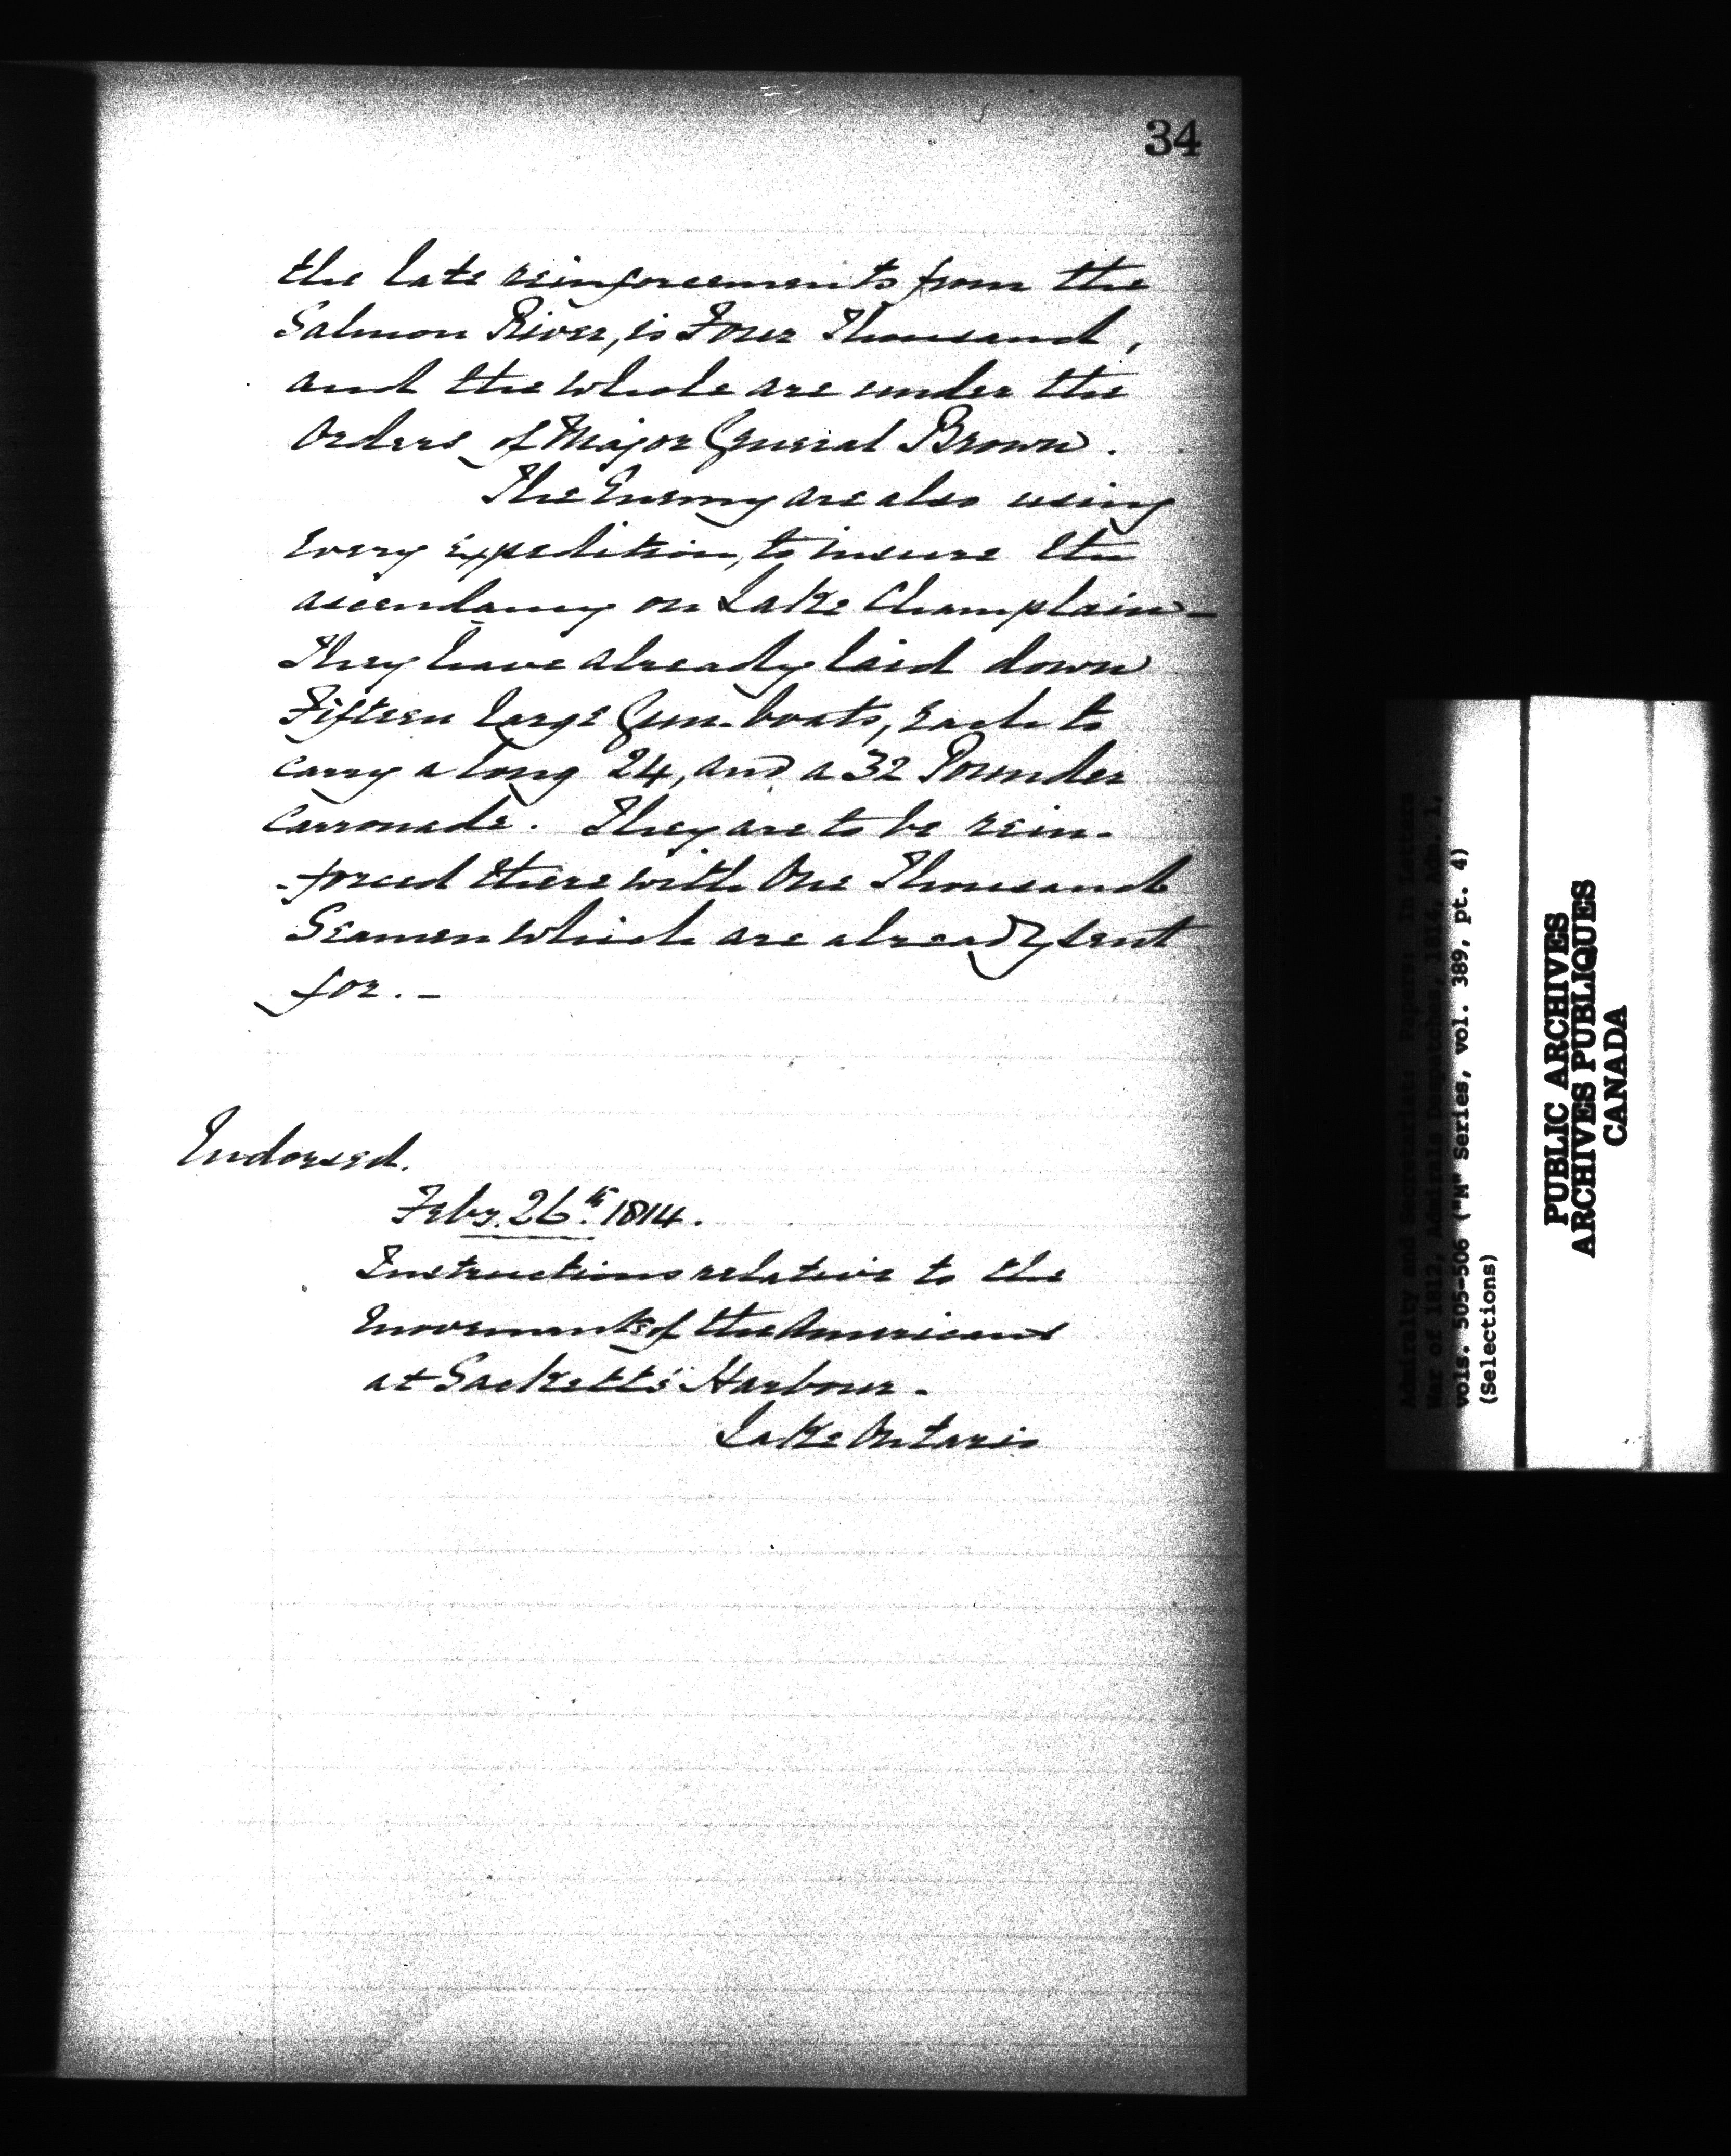 34
the late reinforcements from the
Salmon River, is Four Thousand,
and the whole are under the
Orders of Major General Brown.
The Enemy are also using
every expedition, to insure the
ascendancy on Lake Champlain -
They have already laid down
Fifteen large Gun-boats, each to
carry a long 24, and a 32 Pounder
Carronade. They are to be rein-
-forced there with One Thousand
Seamen which are already sent
for. -
Endorsed.
Feby. 26th. 1814.
Instructions relative to the
movements of the Americans
at Sackett's Harbour -
Lake Ontario
Admiralty and Secretariat: Papers; In Letters
War of 1812, Admirals Despatches, 1814, Adm. 1,
vols. 505-506 ("M" Series, vol. 389, pt. 4)
(Selections)
PUBLIC ARCHIVES
ARCHIVES PUBLIQUES
CANADA